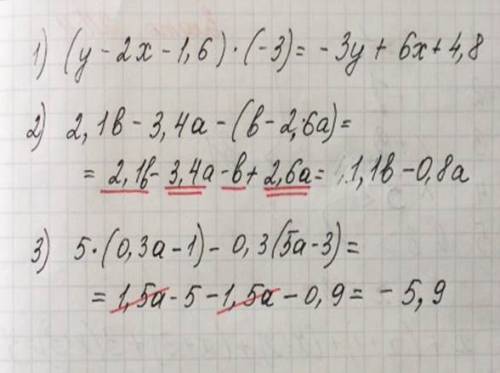 1) (y - 2x - 1,6) · (-3) = - 3y + 6x + 4,8
2) 2,1в - 3,4а - (в - 2,6а) =
= 2,1в - 3,4а - в + 2,6а = 1,1в - 0,8а
3) 5 · (0,3а - 1) - 0,3(5а - 3) =
= 1,5а - 5 - 1,5а - 0,9 = - 5,9